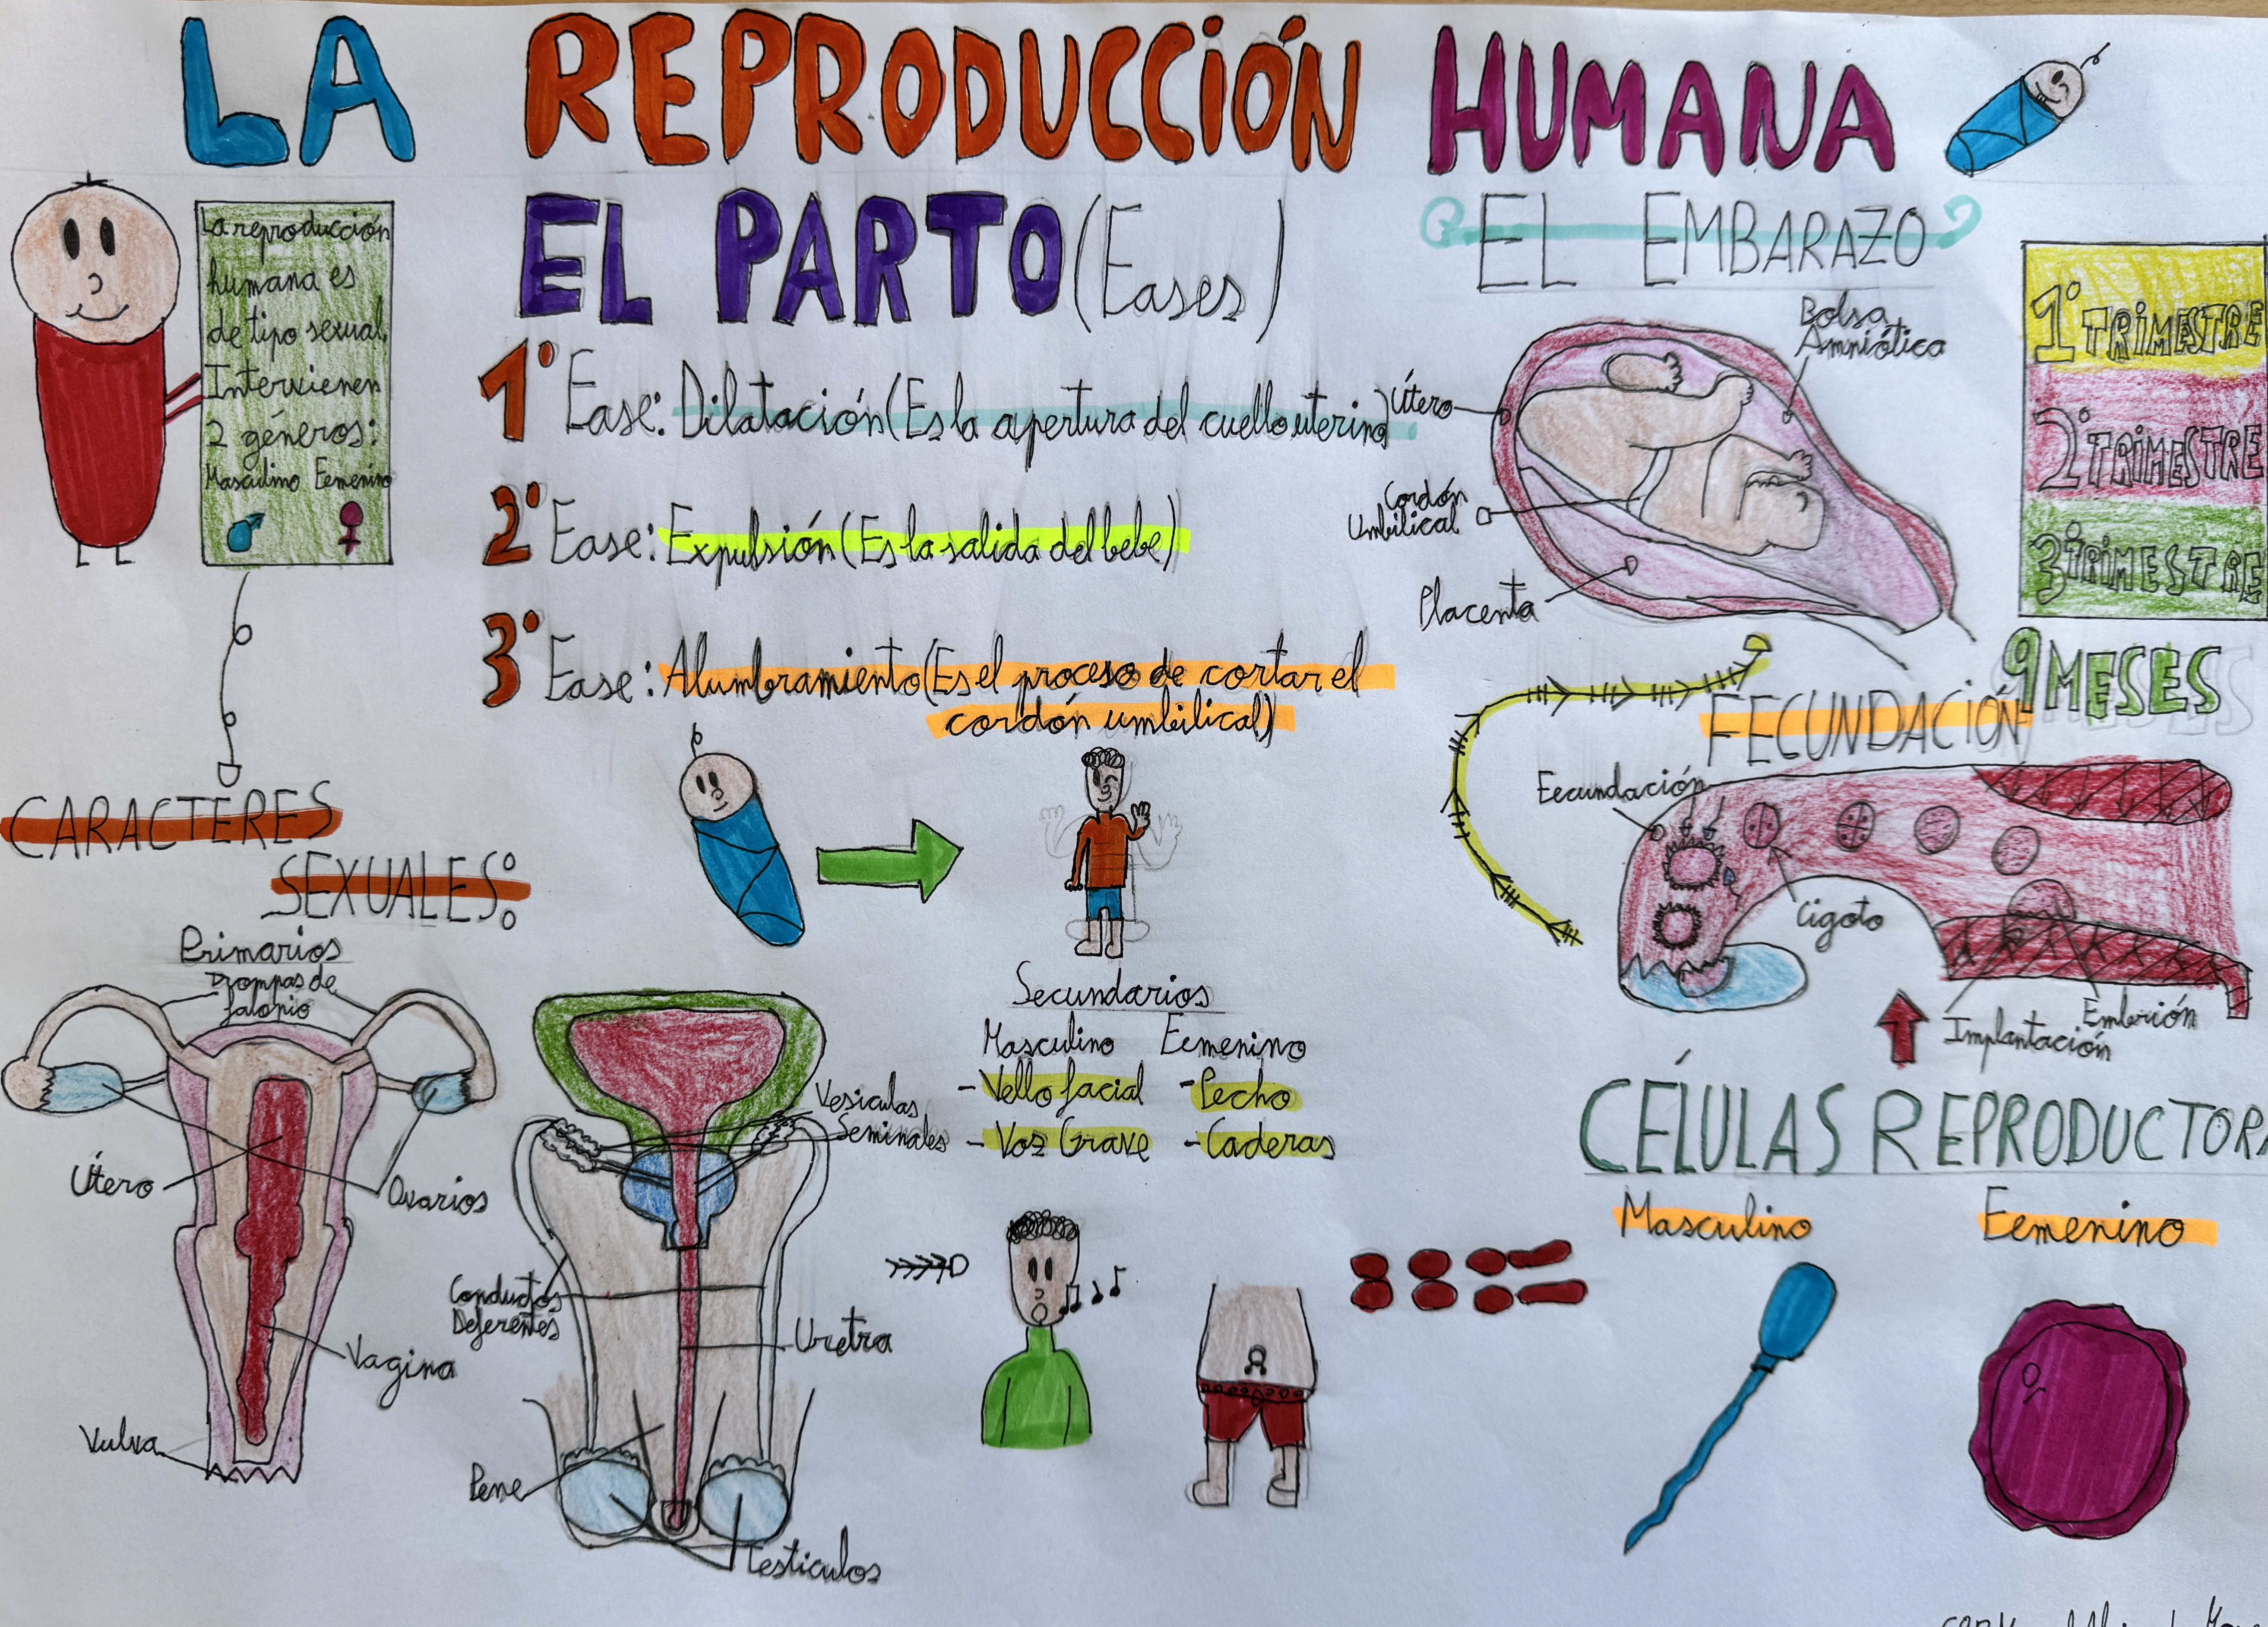 LA REPRODUCCIÓN HUMANA
La reproducción
humana es
de tipo sexual.
Intervienen
2 géneros:
Masculino Femenino
EL PARTO (Fases)
1º Fase: Dilatación (Es la apertura del cuello uterino)
2º Fase: Expulsión (Es la salida del bebe)
3º Fase: Alumbramiento (Es el proceso de cortar el
cordón umbilical)
EL EMBARAZO
Bolsa
Amniótica
Útero
Cordón
Umbilical
Placenta
1º TRIMESTRE
2º TRIMESTRE
3º TRIMESTRE
9 MESES
FECUNDACIÓN
Fecundación
Cigoto
Embrión
Implantación
CARACTERES
SEXUALES:
Primarios
Trompas de
falopio
Útero
Ovarios
Vagina
Vulva
Vesiculas
Seminales
Conductos
Deferentes
Uretra
Pene
Testiculos
Secundarios
Masculino Femenino
- Vello facial - Pecho
- Voz Grave - Caderas
CÉLULAS REPRODUCTORA
Masculino Femenino